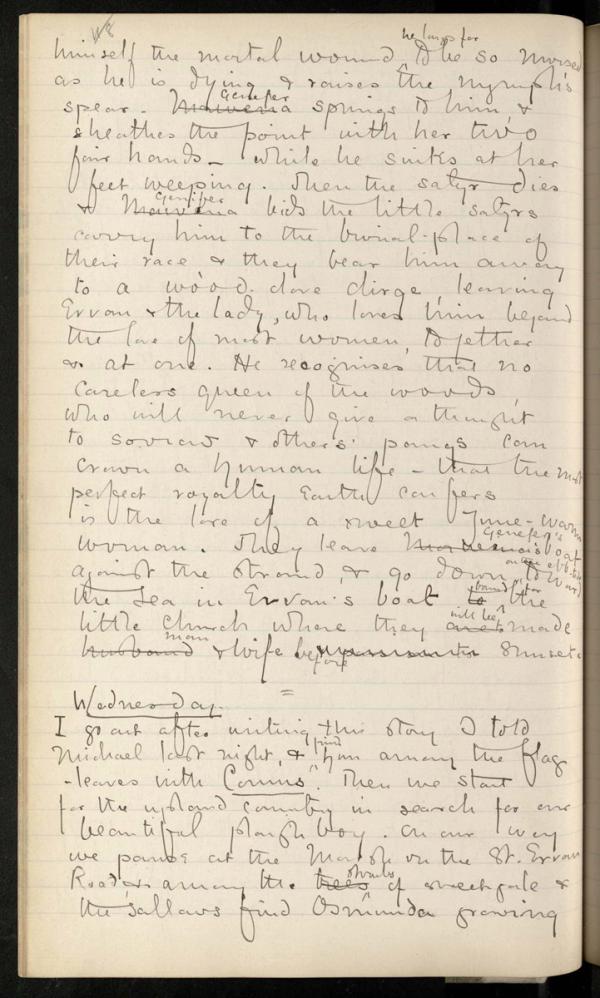 he longs for
himself the mortal wound, to be so nursed
as he is dying & raises the nymph's
Genefer
spear. Maivena springs to him, &
sheathes the point with her two
fair hands – while he sinks at her
feet weeping. Then the satyr dies
Genifer
& Maivena bids the little satyrs
carry him to the burial-place of
their race & they bear him away
to a wood-dove dirge, leaving
Ervan & the lady, who loves him beyond
the love of most women, together
& at one. He recognises that no
careless queen of the woods,
who will never give a thought
to sorrow & others' pangs can
crown a human life – that the most
perfect royalty Earth confers
is the love of a sweet June-warm
Genefer's
woman. They leave boat
on the ebb-tide
against the strand, & go down toward
bound
the sea in Ervan's boat to the
will be
little Church where they are made
man
husband & wife before sunset.
=
Wednesday.
I go out after writing this story I told
find
Michael last night, & him among the flag
-leaves with Comus. Then we start
for the upland country in search for our
beautiful plough boy. On our way
we pause at the Marsh on the St. Ervan
shrubs
Road & among the trees of sweet gale &
the sallows find Osmunda growing